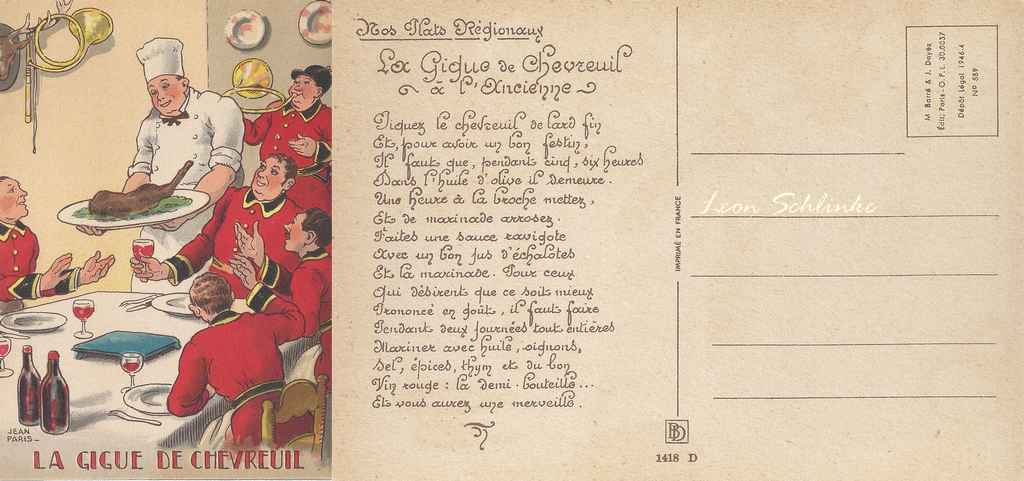 JEAN
PARIS
LA GIGUE DE CHEVREUIL
Nos Plats Régionaux
La Gigue de Chevreuil
à l'Ancienne
Piquez le chevreuil de lard fin
Et, pour avoir un bon festin,
Il faut que, pendant cinq, six heures
Dans l'huile d'olive il demeure.
Une heure à la broche mettez,
Et de marinade arrosez.
Faites une sauce ravigote
Avec un bon jus d'échalotes
Et la marinade. Pour ceux
Qui désirent que ce soit mieux
Prononcé en goût, il faut faire
Pendant deux journées tout entières
Mariner avec huile, oignons,
Sel, épices, thym et du bon
Vin rouge : la demi-bouteille...
Et vous aurez une merveille.
IMPRIMÉ EN FRANCE
BD
1418 D
M. Barré & J. Dayez
Édit. Paris - O.P.I. 30.0037
Dépôt Légal 1946-4
No 589
Leon Schlinke